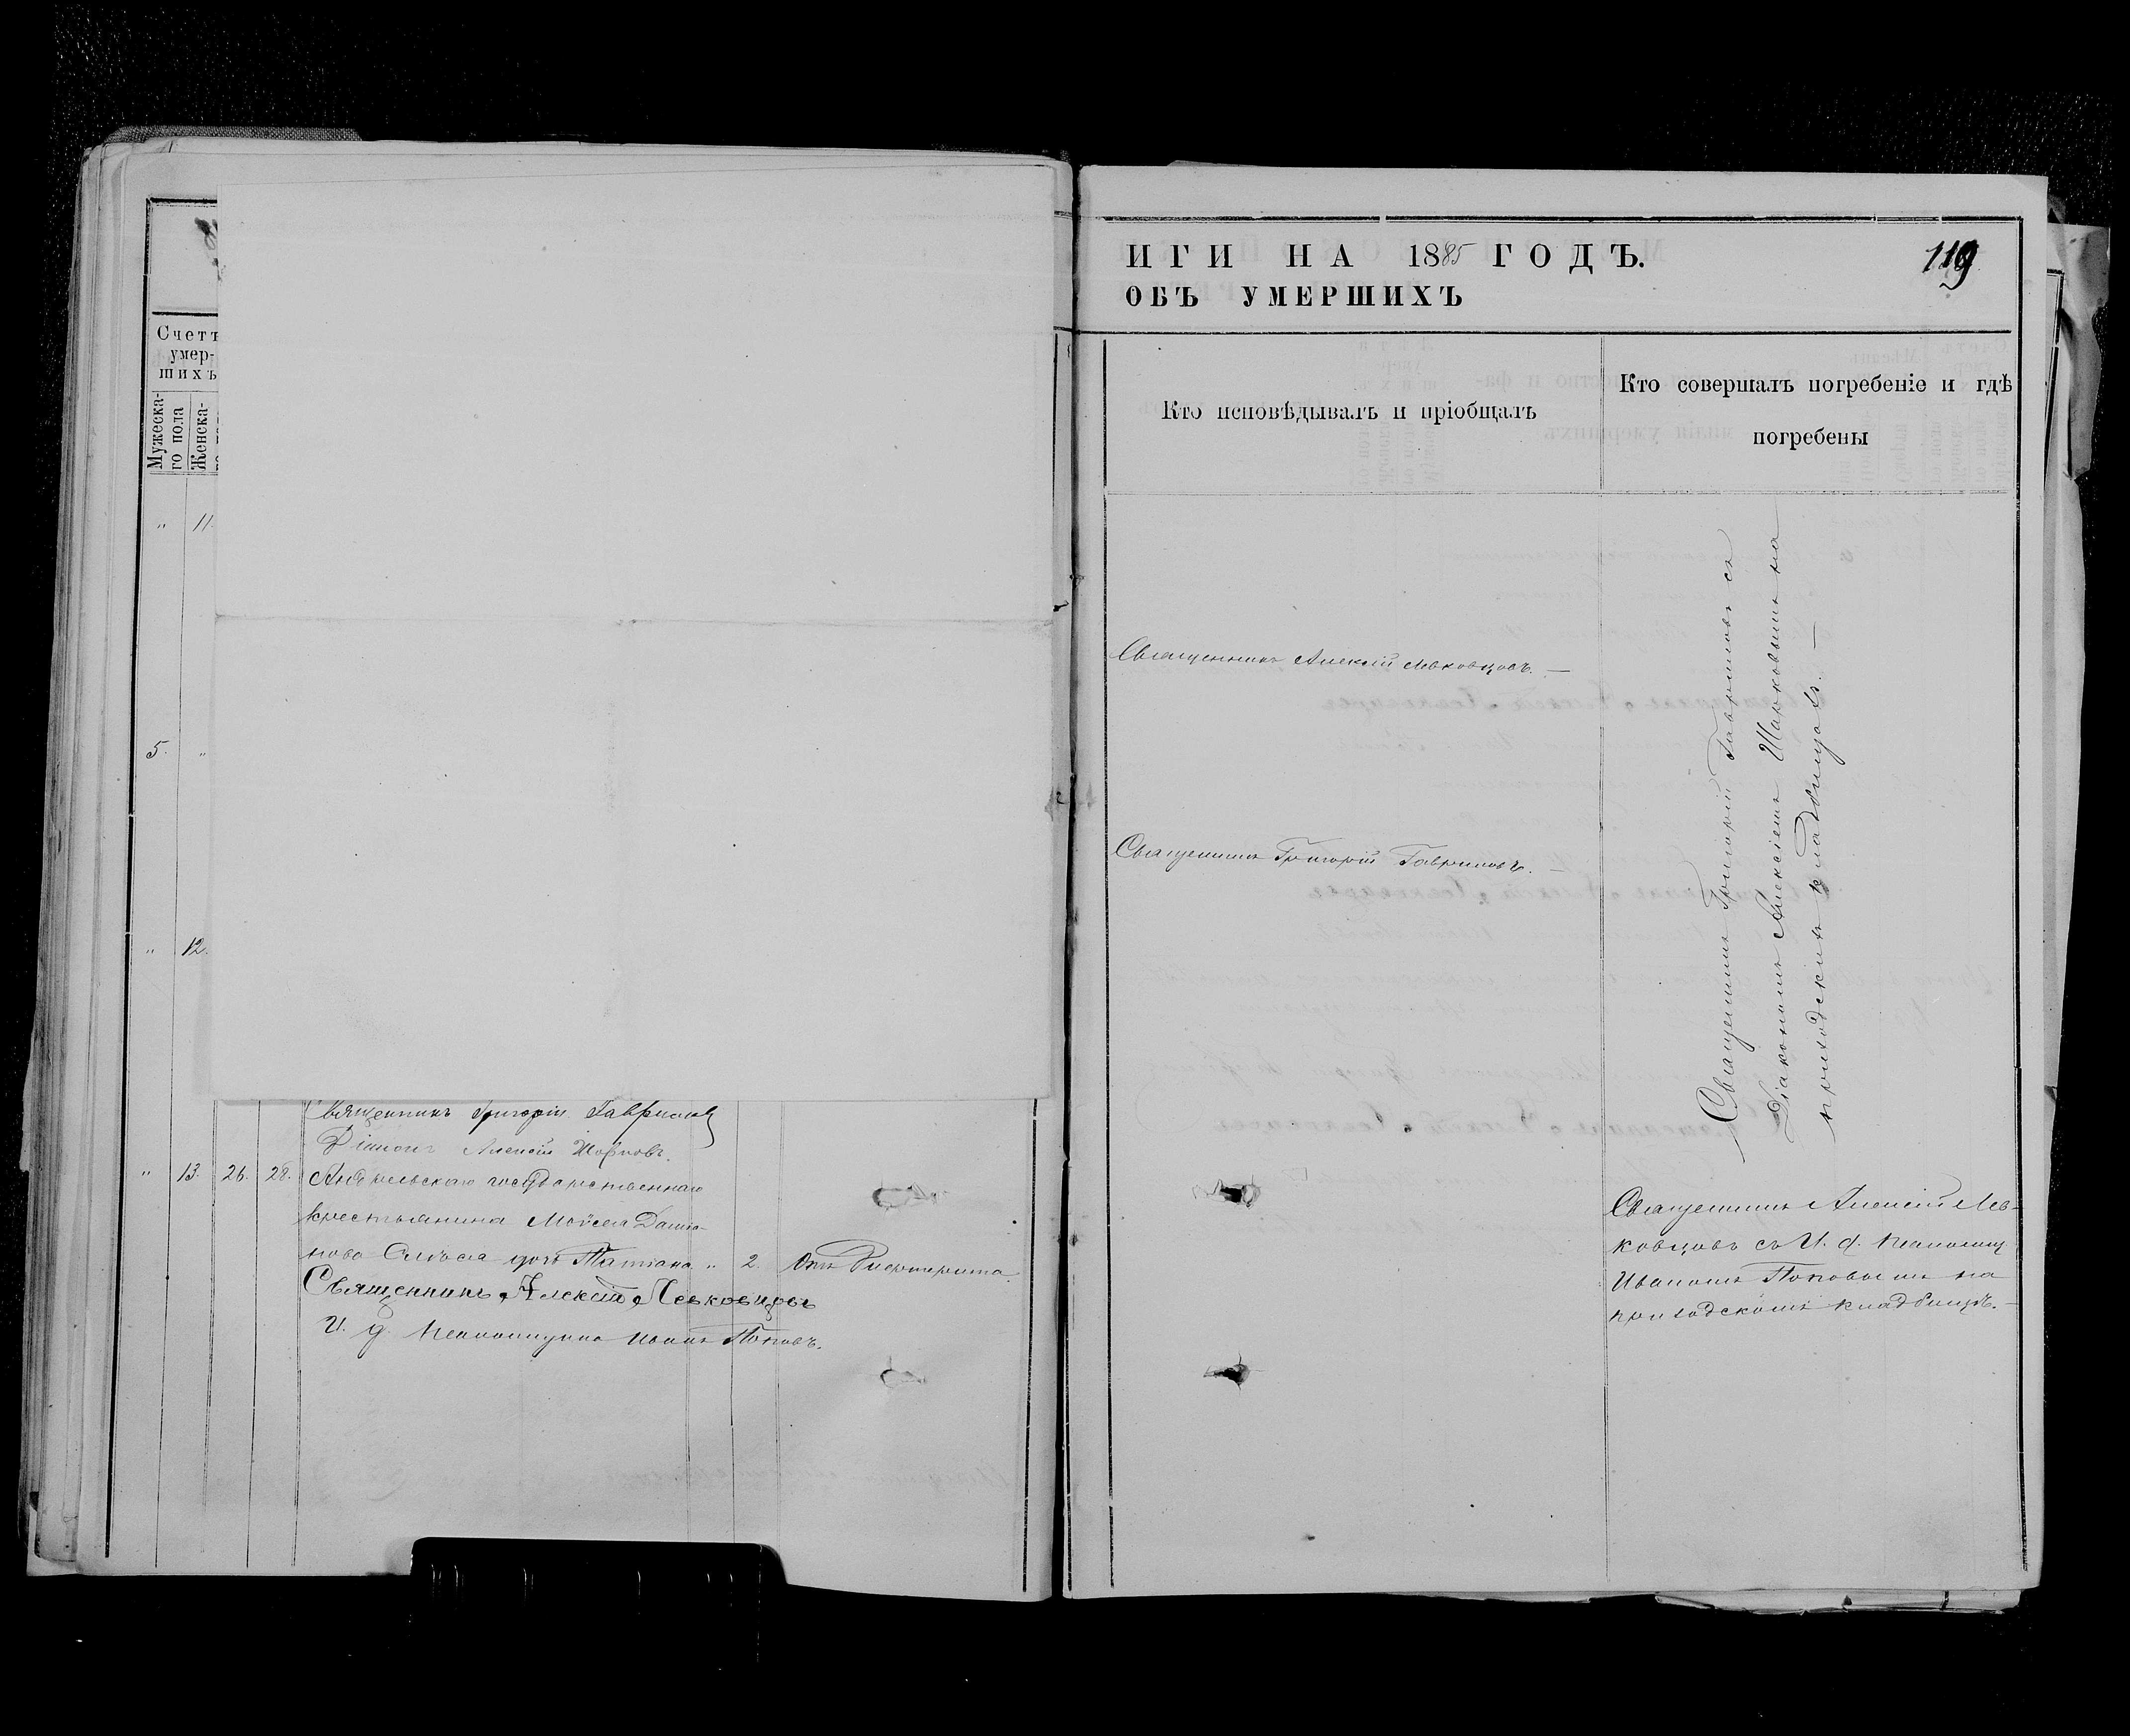 Счетъ
умер-
шихъ
Мужеска-
го пола
Женска-
" 11.
5. "
" 12.
Священникъ Григорій Гавриловъ
Діаконъ Алексій Шарковъ.
" 13. 26. 28. государственнаго
крестьянина Моисея
дочь Татіана " 2. Отъ Дифтерита.
Священникъ Алексій Левковцовъ
И. д. Псаломщика Иванъ Поповъ.
ИГИ НА 1885 ГОДЪ.
119
ОБЪ УМЕРШИХЪ
Кто исповѣдывалъ и пріобщалъ
Кто совершалъ погребеніе и гдѣ
погребены
Священникъ Алексій Левковцовъ. —
Священникъ Григорій Гавриловъ. —
Священникъ Григорій Гавриловъ съ
Діакономъ Алексіемъ Шарковымъ на
приходскомъ кладбищѣ. —
Священникъ Алексій Лев-
ковцовъ съ И. д. Псаломщ.
Иваномъ Поповымъ на
приходскомъ кладбищѣ. —